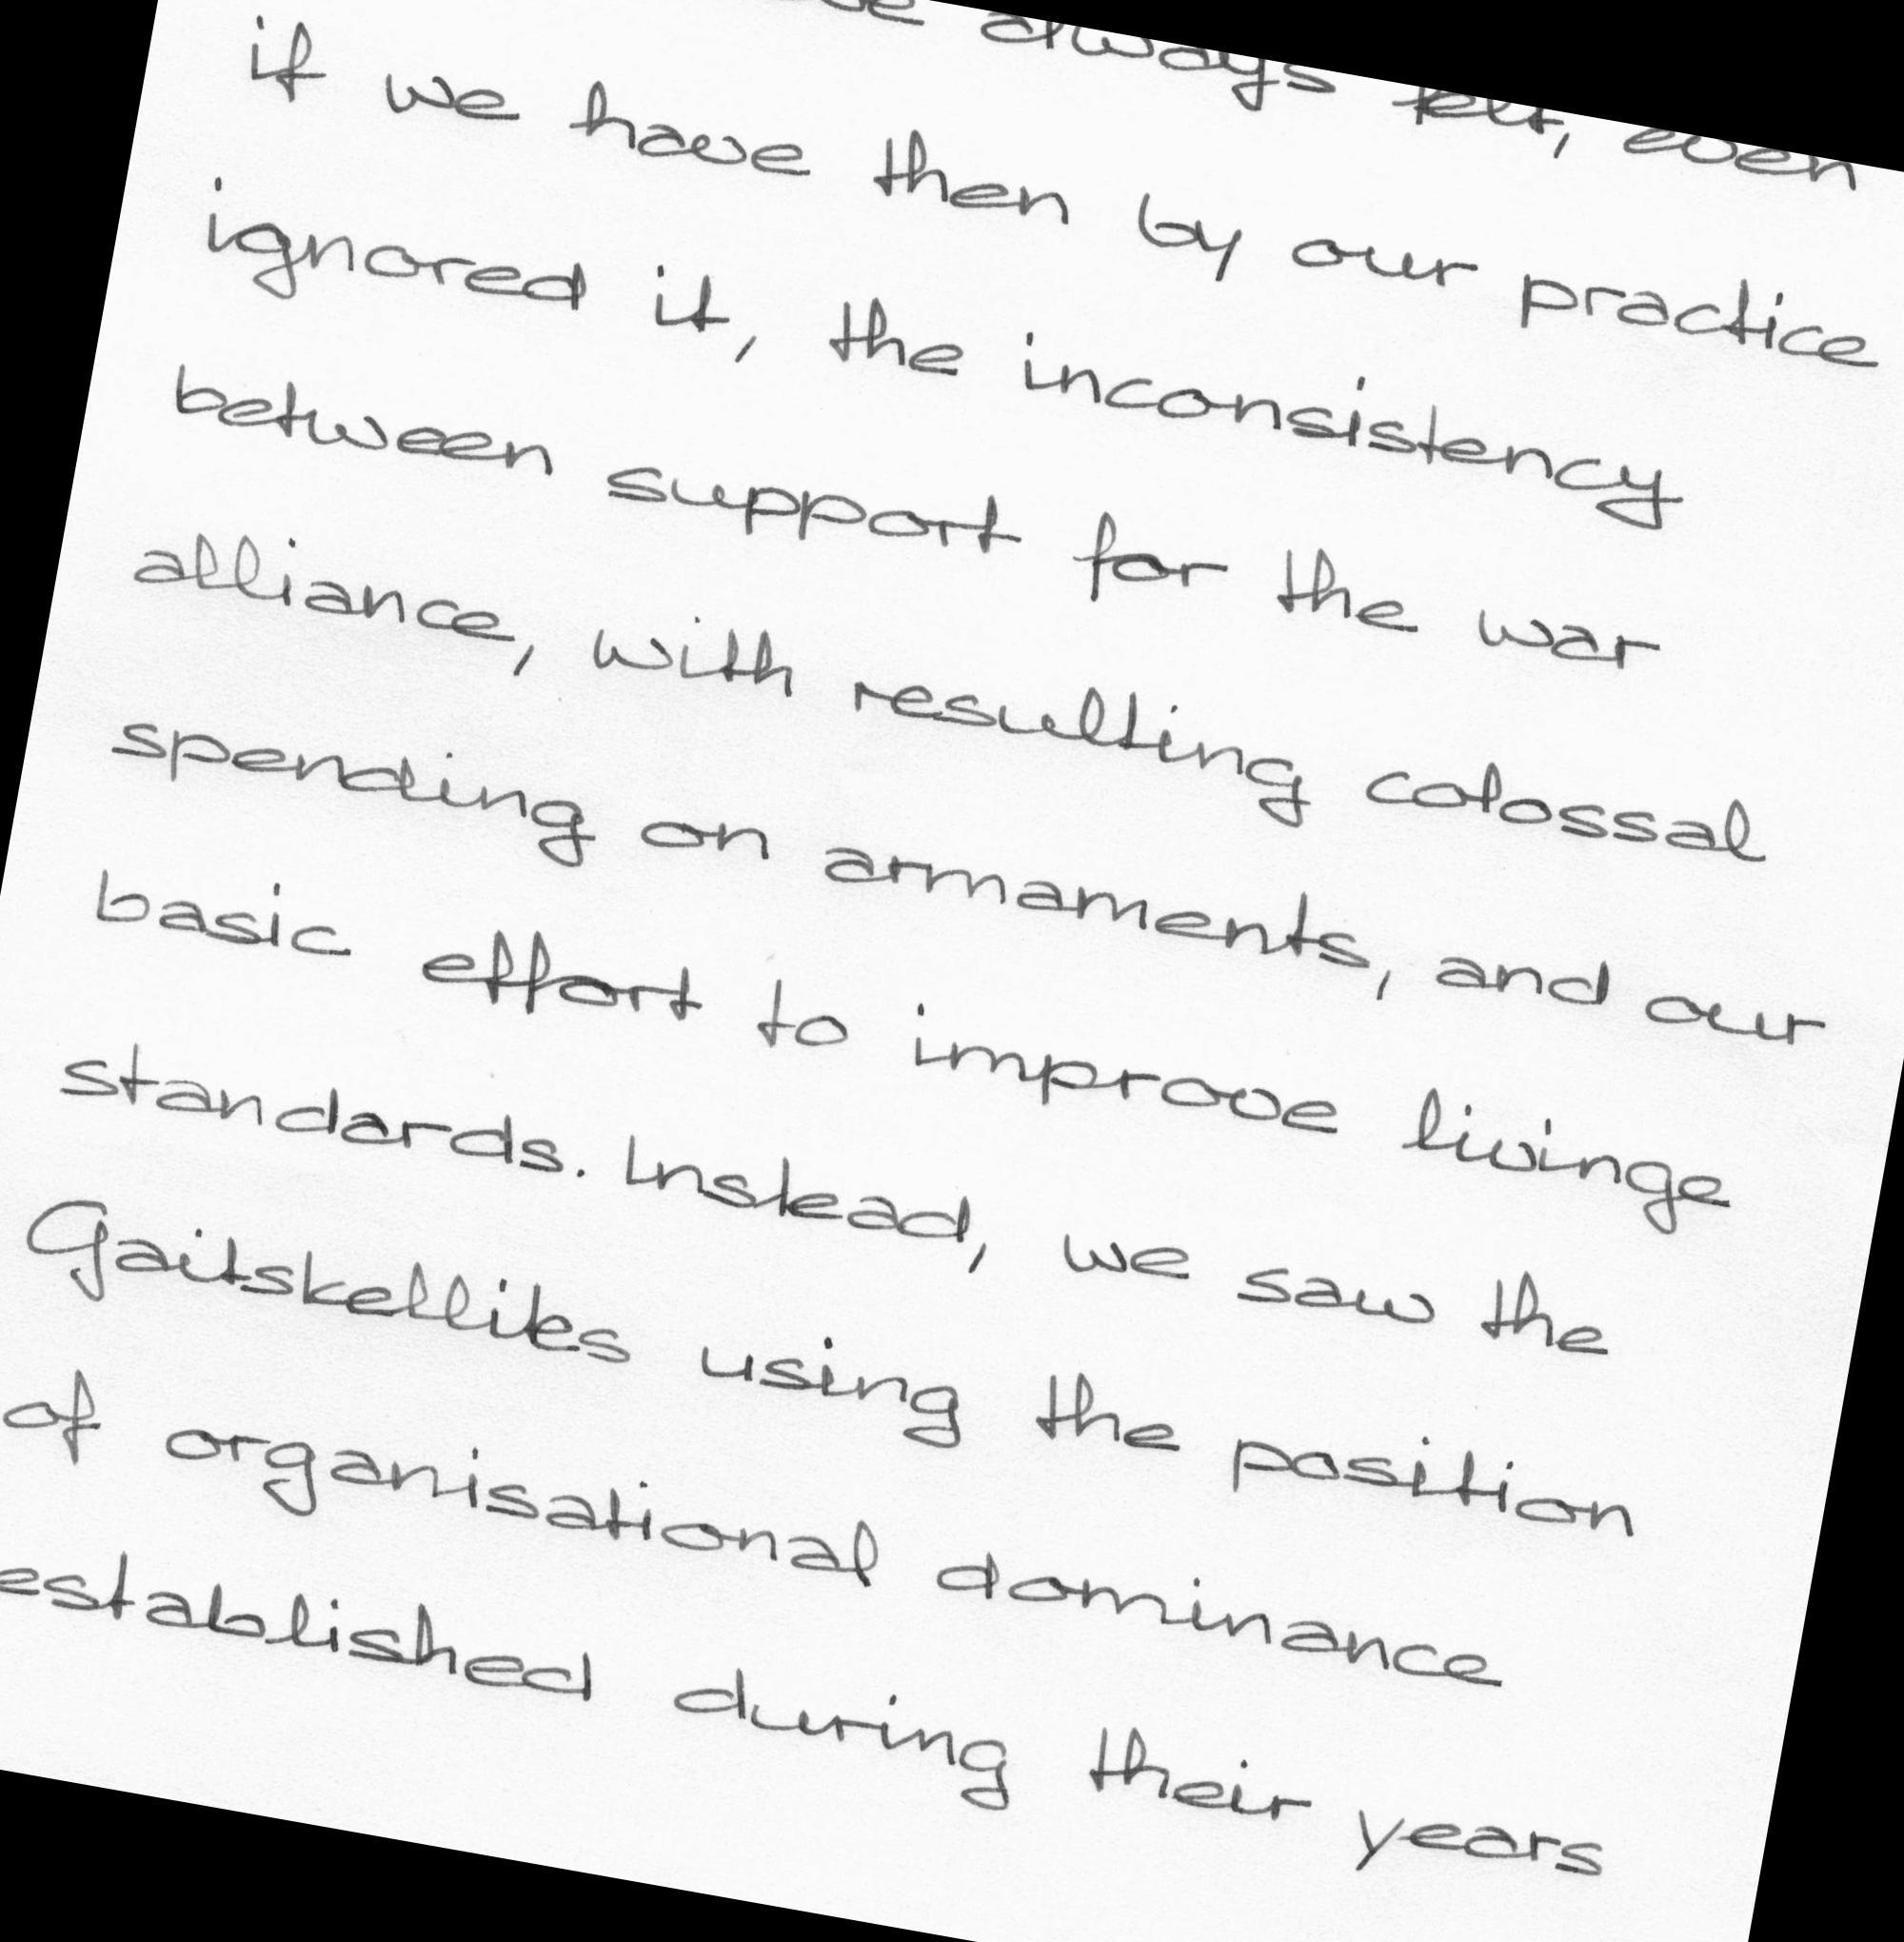 always felt, even
if we have then by our practice
ignored it, the inconsistency
between support for the war
alliance, with resulting colossal
spending on armaments, and our
basic effort to improve livinge
standards. Instead, we saw the
Gaitskellites using the position
of organisational dominance
established during their years